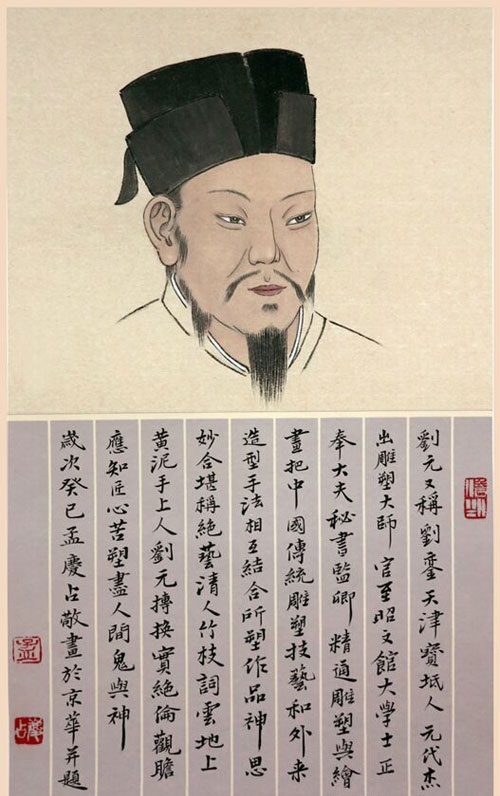 劉元又稱劉鑾天津寶坻人元代杰
出雕塑大師官至昭文館大學士正
奉大夫秘書監卿精通雕塑與繪
畫把中國傳統雕塑技藝和外來
造型手法相互結合所塑作品神思
妙合堪稱絕藝清人竹枝詞雲地上
黃泥手上人劉元摶換實絕倫觀瞻
應知匠心苦塑盡人間鬼與神
歲次癸巳孟慶占敬畫於京華并題